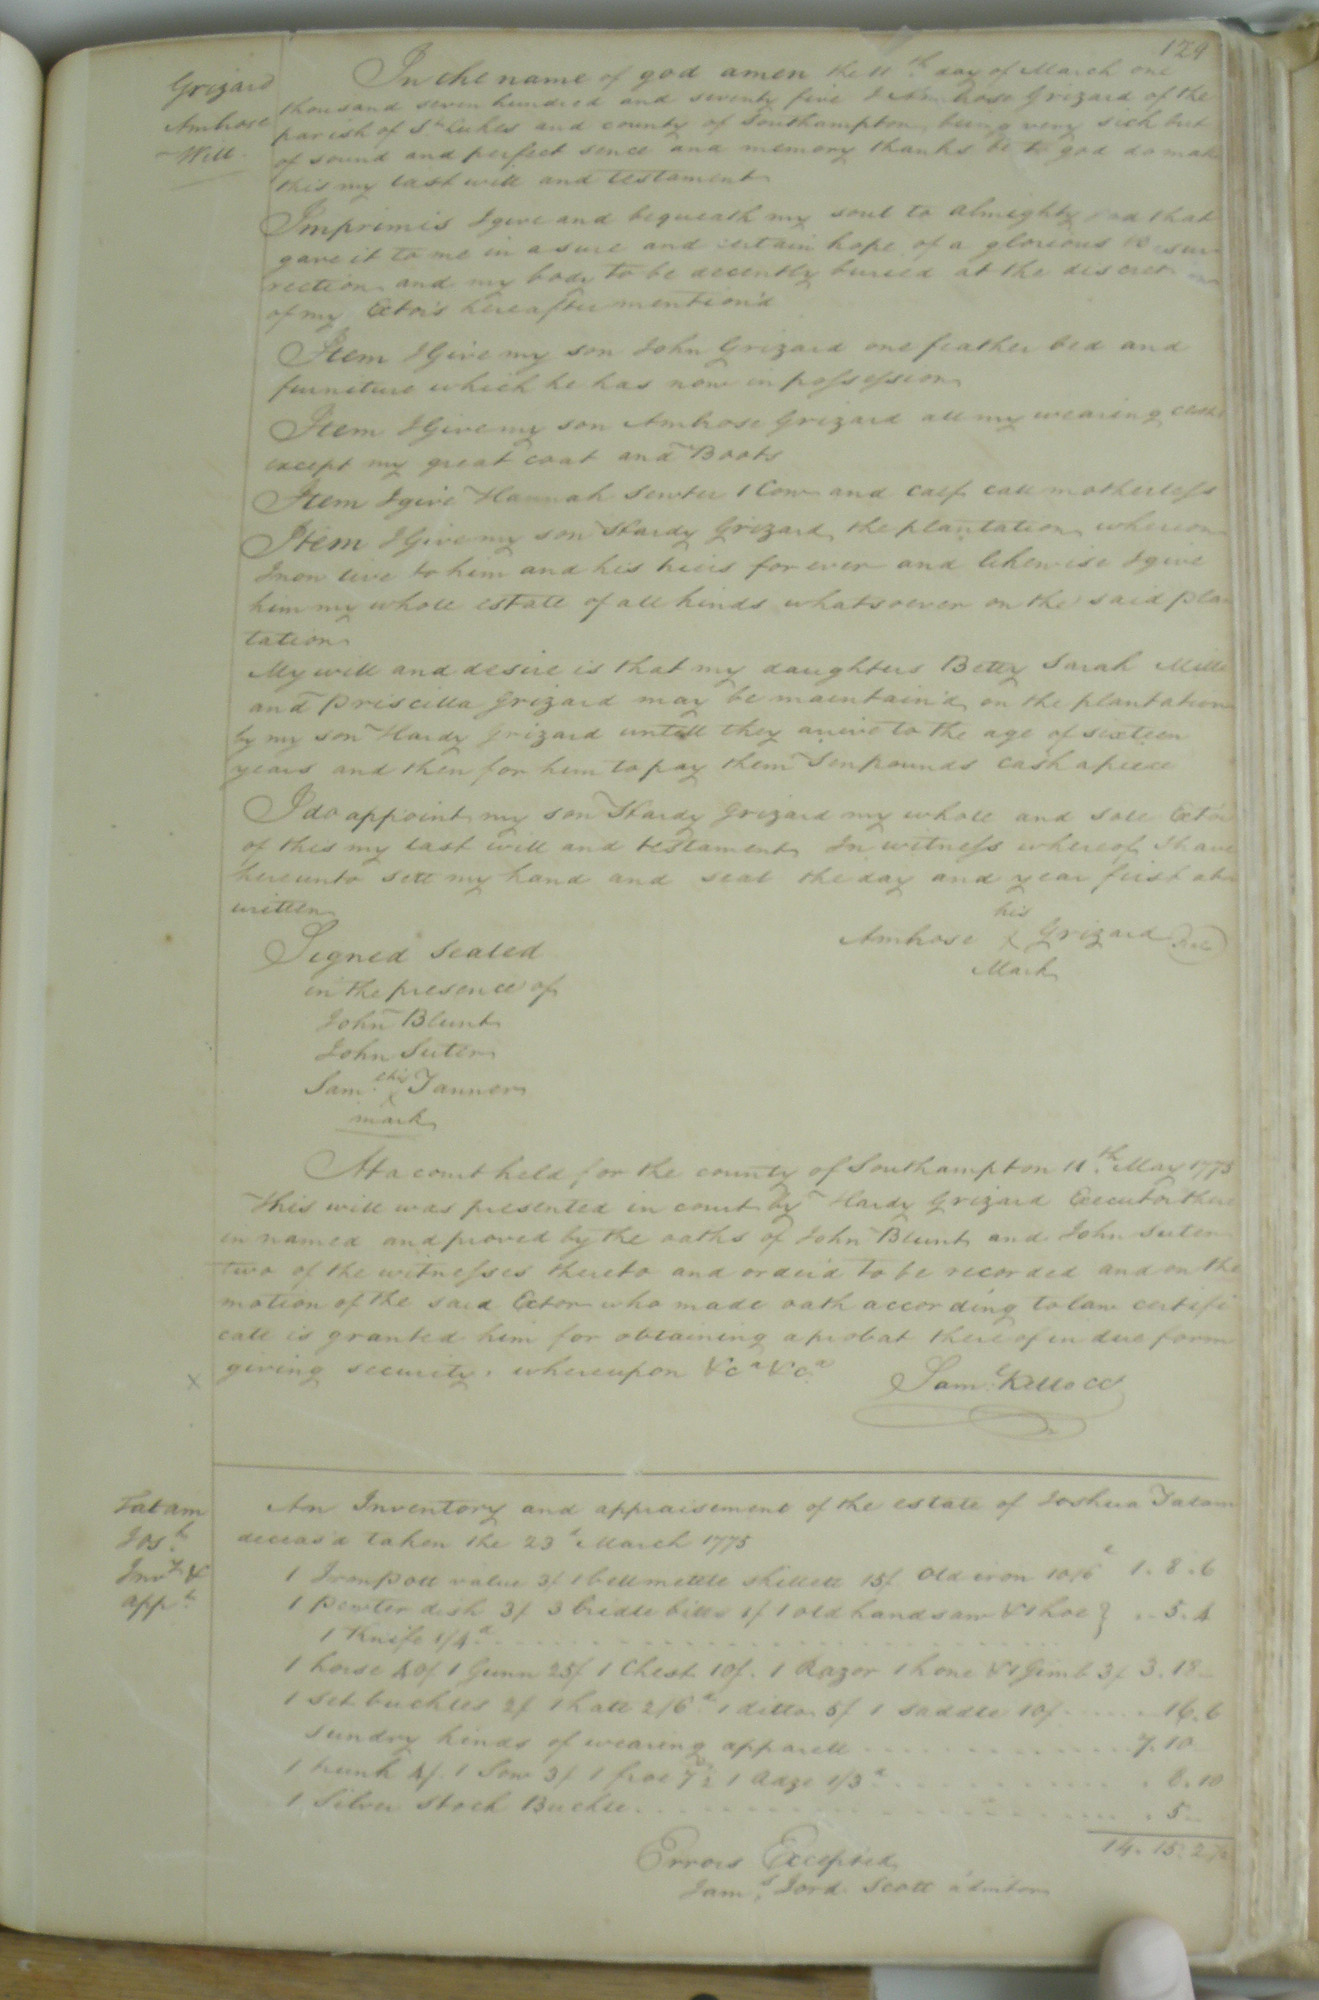 129
Grizard
Ambrose
Will
In the name of god amen the 11th day of March one
thousand seven hundred and seventy five I Ambrose Grizard of the
parish of St. Lukes and county of Southampton being very sick but
of sound and perfect sence and memory thanks be to god do make
this my last will and testament
Imprimis I give and bequeath my soul to almighty god that
gave it to me in a sure and certain hope of a glorious Resur
rection and my body to be decently buried at the discretion
of my Extor's hereafter mention'd
Item I Give my son John Grizard one feather bed and
furniture which he has now in possession
Item I Give my son Ambrose Grizard all my wearing
except my great coat and Boots
Item I give Hannah Sewter 1 Cow and calf call motherless
Item I Give my son Hardy Grizard the plantation whereon
I now live to him and his heirs for ever and likewise I give
him my whole estate of all kinds whatsoever on the said plan
tation
My will and desire is that my daughters Betty Sarah Mille
and Priscilla Grizard may be maintain'd on the plantation
by my son Hardy Grizard untill they arive to the age of sixteen
years and then for him to pay them Ten pounds cash apiece
I do appoint my son Hardy Grizard my whole and sole Extor
of this my last will and testament In witness whereof I have
hereunto sett my hand and seal the day and year first abo
written
his
Ambrose X Grizard Seal
Mark
Signed Sealed
in the presence of
John Blunt
John Suter
Sam. his X Tanner
mark
At a court held for the county of Southampton 11th. May 1775
This will was presented in court by Hardy Grizard Executor there
in named and proved by the oaths of John Blunt and John Suter
two of the witnesses thereto and order'd to be recorded and on the
motion of the said Extor who made oath according to law certifi
cate is granted him for obtaining a probat thereof in due form
giving security, whereupon &ca &ca
Saml. Kello CC
X
Tatam
Josh.
Invy. &
Appt.
An Inventory and appraisement of the estate of Joshua Tatam
deceas'd taken the 23d March 1775
1 Iron pott value 3/ 1 bell mettle skillett 15/ Old iron 10/6d 1. 8. 6
1 pewter dish 3/ 3 bridle bitts 1/ 1 old handsaw & 1 hoe } .. 5. 4
1 Knife 1/4d
1 horse 40/ 1 Gunn 25/ 1 Chest 10/. 1 Razor 1 hone & 1 Gimb 3/ 3. 18 –
1 set buckles 2/ 1 hatt 2/6d 1 ditto 5/ 1 saddle 10/ 16. 6
Sundry kinds of wearing apparell 7. 10
1 trunk 4/. 1 Sow 3/ 1 froe 7½ 1 Adze 1/3d . 8. 10
1 Silver Stock Buckle . 5 –
14. 15. 2½
Errors Excepted
Jams. Jord. Scott admitor